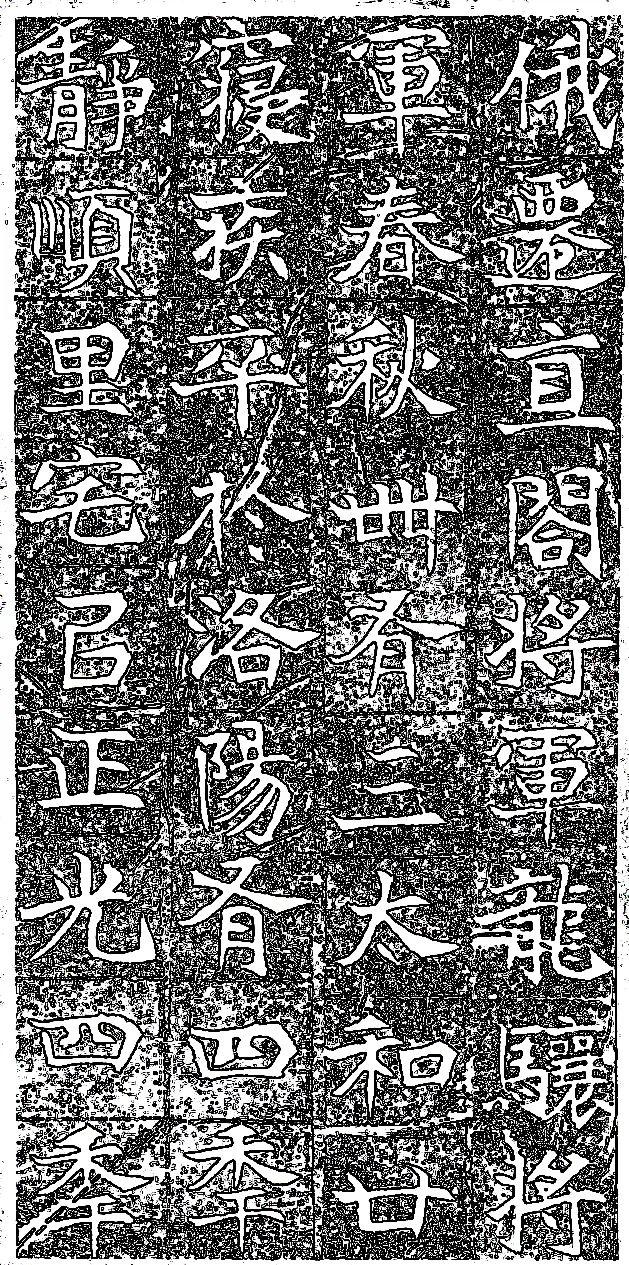 俄遷直閤將軍龍驤將
軍春秋卌有三太和廿
寑疾卒於洛陽有四年
靜順里宅㠯正光四年